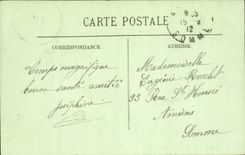 CARTE POSTALE
CORRESPONDANCE
ADRESSE
9 35
15 8
12
SOMME
Temps magnifique
bonne santé amitié
Joséphine
Mademoiselle
Eugénie
33 Rue St Honoré
Amiens
Somme